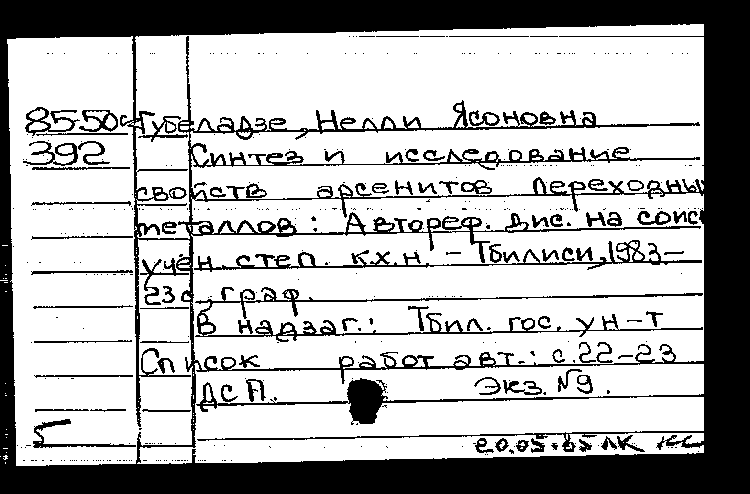 85-50с Губеладзе, Нелли Ясоновна
392 Синтез и исследование
свойств арсенитов переходны
металлов: Автореф. дис. на соис
учен степ. к.х.н. - Тбилиси, 1983-
23 с., граф.
В надзаг.: Тбил. гос. ун-т
Список работ авт.: с. 22-23
ДСП. Экз. №9.
5 20.05.85 ЛК